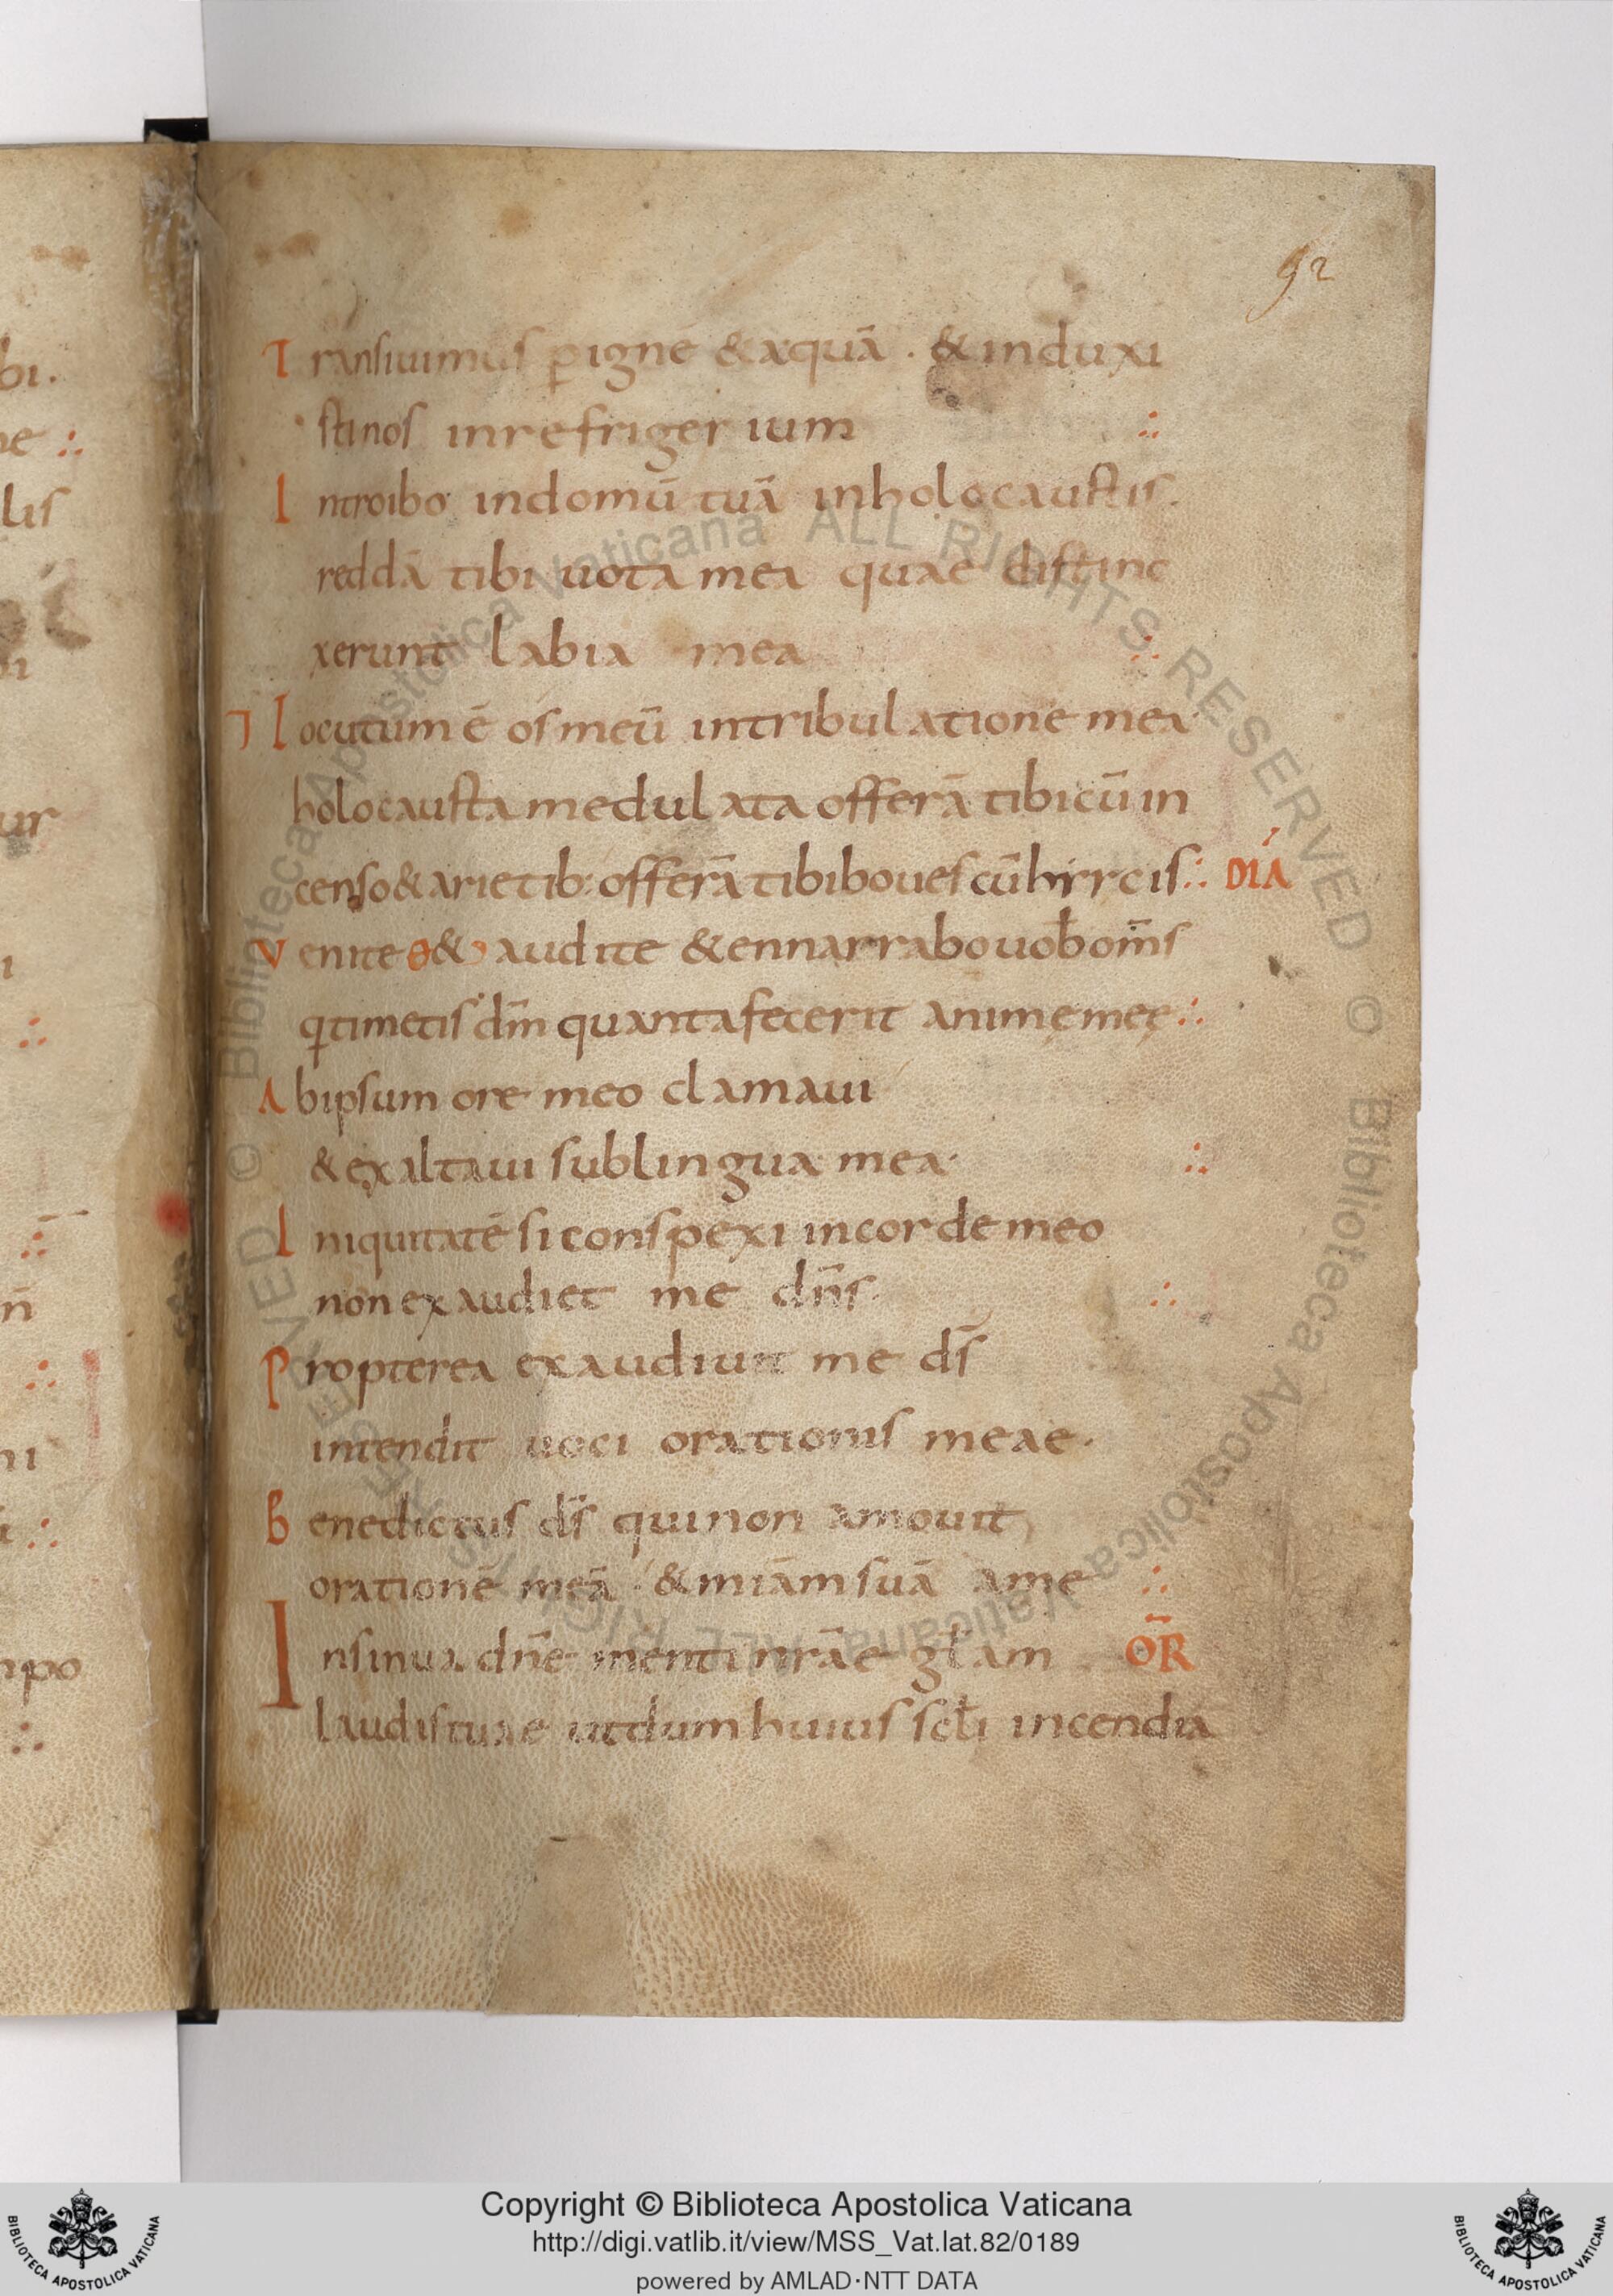 92
Transiuimus ꝑ ignē & aquā . & induxi
sti nos in refrigerium ∴
Introibo in domū tuā in holocaustis.
reddā tibi uota mea quae distinc
xerunt labia mea ∴
locutum ē os meū in tribulatione mea
holocausta medulata offerā tibi cū in
censo & arietib: offerā tibi boues cū hircis ∴ DIA
Venite & audite & ennarrabo uob om̄s
q timetis dm̄ quanta fecerit animę meę ∴
Ab ipsum ore meo clamaui
& exaltaui sub lingua mea ∴
Iniquitatē si conspexi in corde meo
non exaudiet me dn̄s. ∴
Propterea exaudiuit me ds̄
intendit uoci orationis meae.
Benedictus ds̄ qui non amouit
orationē meā . & miām suā a me ∴
Insinua dn̄e menti nrāe gł̄am OR̄
laudis tuae ut dum huius scł̄i incendia
bi.
ne ∴
lis
ur
∴
n̄
∴
ni
∴
npo
∴
© Biblioteca Apostolica Vaticana ALL RIGHTS RESERVED © Biblioteca Apostolica Vaticana ALL RIGHTS RESERVED
Copyright © Biblioteca Apostolica Vaticana
http://digi.vatlib.it/view/MSS_Vat.lat.82/0189
powered by AMLAD·NTT DATA
BIBLIOTECA APOSTOLICA VATICANA
BIBLIOTECA APOSTOLICA VATICANA